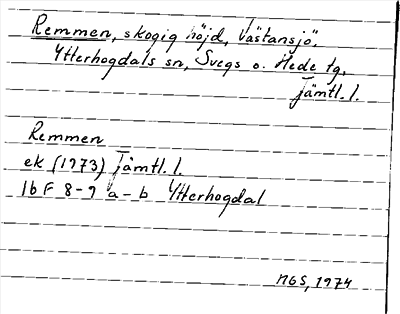 Remmen, skogig höjd, Västansjö,
Ytterhogdals sn, Svegs o. Hede tg,
Jämtl. l.
Remmen
ek (1973) Jämtl. l.
16 F 8-9 a-b Ytterhogdal
MGS, 1974